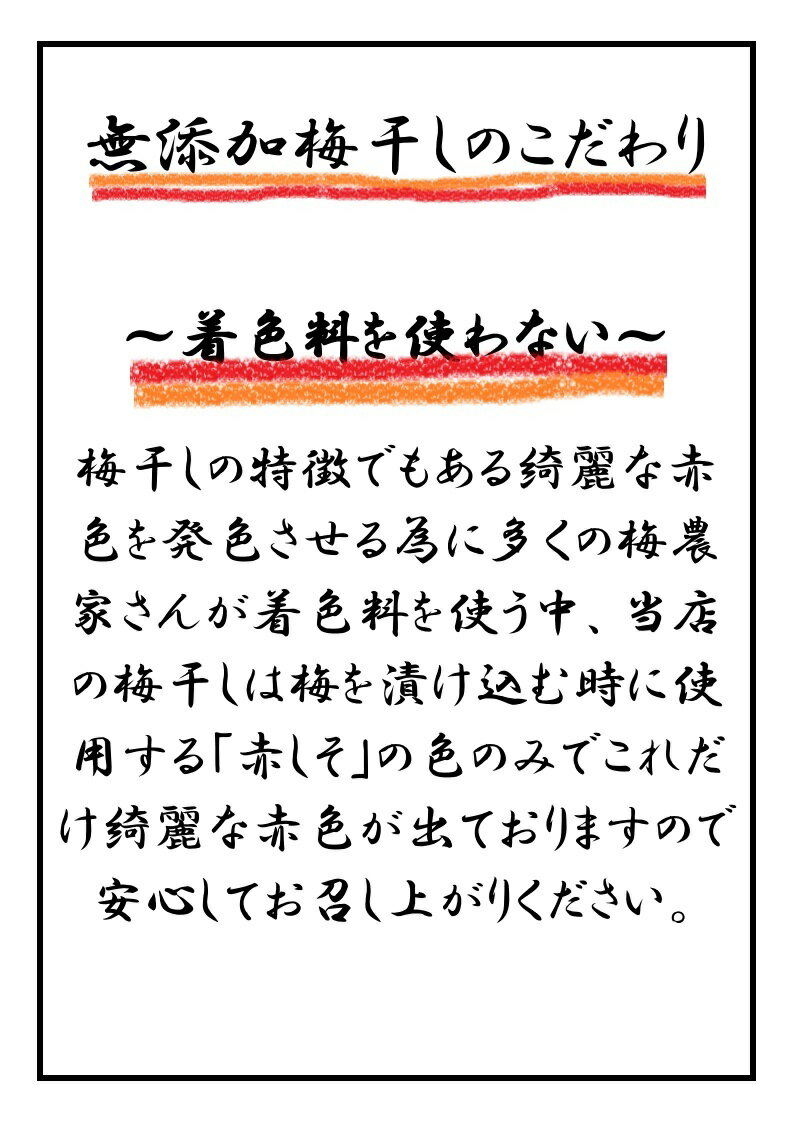 無添加梅干しのこだわり
～着色料を使わない～
梅干しの特徴でもある綺麗な赤
色を発色させる為に多くの梅農
家さんが着色料を使う中、当店
の梅干しは梅を漬け込む時に使
用する「赤しそ」の色のみでこれだ
け綺麗な赤色が出ておりますので
安心してお召し上がりください。